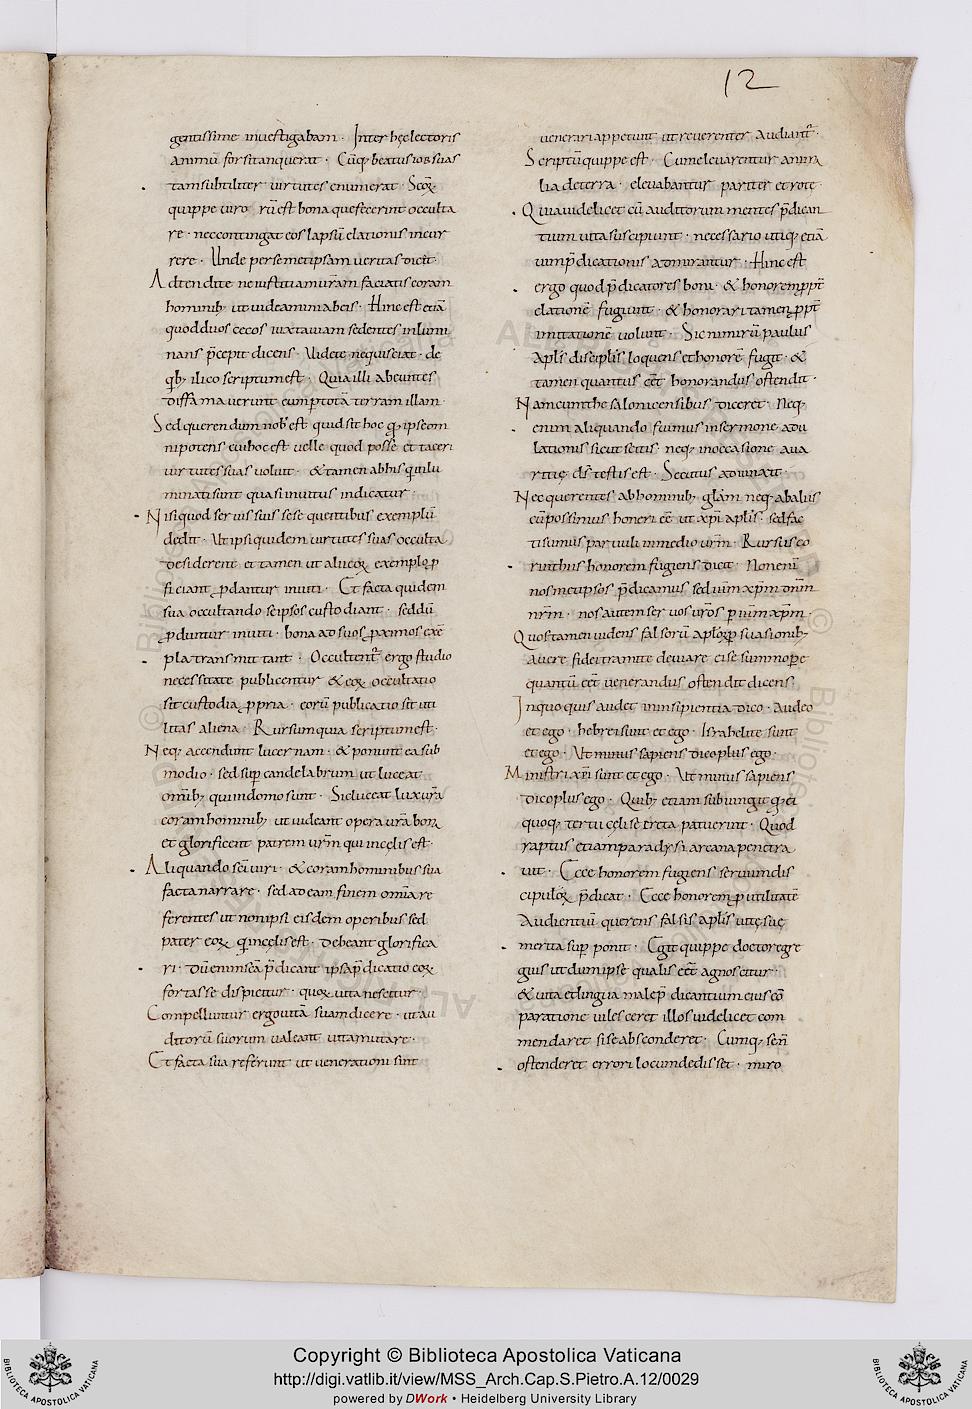 12
gentissime inuestigabam · Inter hęc lectoris
animū forsitan querat · Cūq; beatus iob suas
tam subtiliter uirtutes enumerat · Scōꝝ
quippe uiroꝝ ēst bona que fecerint occulta
re · nec contingat eos lapsū elationis incur
rere · Unde per semetipsam ueritas dicit ·
Adtendite ne iustitiam uram̄ faciatis coram
hominib; ut uideamini ab eis · Hinc est etiā
quod duos cecos iuxta uiam sedentes inlumi
nans p̄cepit dicens · Videte nequis sciat · de
qib; ilico scriptum est · Quia illi abeuntes
diffamauerunt eum ꝑ totā terram illam ·
Sed querendum nob̄ est quid sit hoc qđ ipse om
nipotens cui hoc est uelle quod posse et taceri
uirtutes suas uoluit · & tamen ab his qui inlu
minati sunt quasi inuitus indicatur ·
Nisi quod seruis suis sese quentibus exemplū
dedit · Ut ipsi quidem uirtutes suas occulta
desiderent et tamen ut alii eoꝝ exemplo ꝓ
ficiant ꝓdantur inuiti · Et facta quidem
sua occultando se ipsos custodiant · sed dū
ꝓduntur inuiti · bona ad suos ꝓximos exē
pla transmittant · Occultent̄ ergo studio
necessitate publicentur & eoꝝ occultatio
sit custodia ꝓpria · eorū publicatio sit uti
litas aliena · Rursum quia scriptum est ·
Neq; accendunt lucernam · & ponunt ea sub
modio · sed sup̄ candelabrum ut luceat
omīb; qui in domo sunt · Sic luceat lux ur̄a
coram hominib; ut uideant opera ur̄a bona
et glorificent patrem ur̄m qui in cęlis est ·
Aliquando sc̄i uiri · & coram hominibus sua
facta narrare · sed ad eam finem omīa re
ferentes ut non ipsi eisdem operibus sed
pater eoꝝ qi in cęlis est · debeant glorifica
ri · Dū enim sc̄a p̄dicant ipsa p̄dicatio eoꝝ
fortasse dispicitur · quoꝝ uita nescitur ·
Compelluntur ergo uitā suam dicere · ut au
ditorū suorum ualeant uitam mutare ·
Et facta sua referunt ut uenerationi sint
uenerari appetunt ut reuerenter audiant̄ ·
Scriptū quippe est · Cum eleuarentur anima
lia de terra · eleuabantur pariter et rotę ·
Quia uidelicet cū auditorum mentes p̄dican
tium uitā suscipiunt · necessario utiq; etiā
uim p̄dicationis admirantur · Hinc est
ergo quod p̄dicatores boni · & honorem ꝓpt̄
elationē fugiunt · & honorari tamen ꝓpt̄
imitationē uolunt · Sic nimirū paulus
apl̄s discipl̄is loquens et honorē fugit · &
tamen quantus eēt honorandus ostendit ·
Nam cum thesalonicensibus diceret · Neq;
enim aliquando fuimus in sermone adu
lationis sicut scitis · neq; in occasione aua
ritię ds̄ testis est · Secutus adiunxit ·
Nec querentes ab hominib; glām neq; ab aliis
cū possimus honeri eē ut xp̄i apl̄i · sed fac
ti sumus paruuli in medio ur̄m · Rursus co
rinthiis honorem fugiens dicit · Non enī
nosmetipsos p̄dicamus sed ihm̄ xp̄m dnm̄
nr̄m · nos autem seruos ur̄os ꝑ ihm̄ xp̄m ·
Quos tamen uidens falsorū aploꝝ suasionib;
a uere fidei tramite deuiare eis esummopere
quantū eēt uenerandus ostendit dicens ·
In quo quis audet in insipientia dico · audeo
et ego · hebrei sunt et ego · Israhelite sunt
et ego · Ut minus sapiens dico plus ego ·
Ministri xp̄i sunt et ego · Ut minus sapiens
dico plus ego · Quib; etiam subiungit qđ ei
quoq; tertii cęli secreta patuerint · Quod
raptus etiam paradysi arcana penetra
uit · Ecce honorem fugiens seruum dis
cipuloꝝ p̄dicat · Ecce honorem ꝓ utilitate
audientiū querens falsis apl̄is uitę suę
merita sup̄ponit · Egit quippe doctor egre
gius ut dum ipse qualis eēt agnoscitur ·
& uita et lingua male p̄dicantium eius cō
paratione uilesceret illos uidelicet com
mendaret si se absconderet · Cumq; se nī
ostenderet errori locum dedisset · miro
Copyright © Biblioteca Apostolica Vaticana
http://digi.vatlib.it/view/MSS_Arch.Cap.S.Pietro.A.12/0029
powered by DWork • Heidelberg University Library
BIBLIOTECA APOSTOLICA VATICANA
BIBLIOTECA APOSTOLICA VATICANA